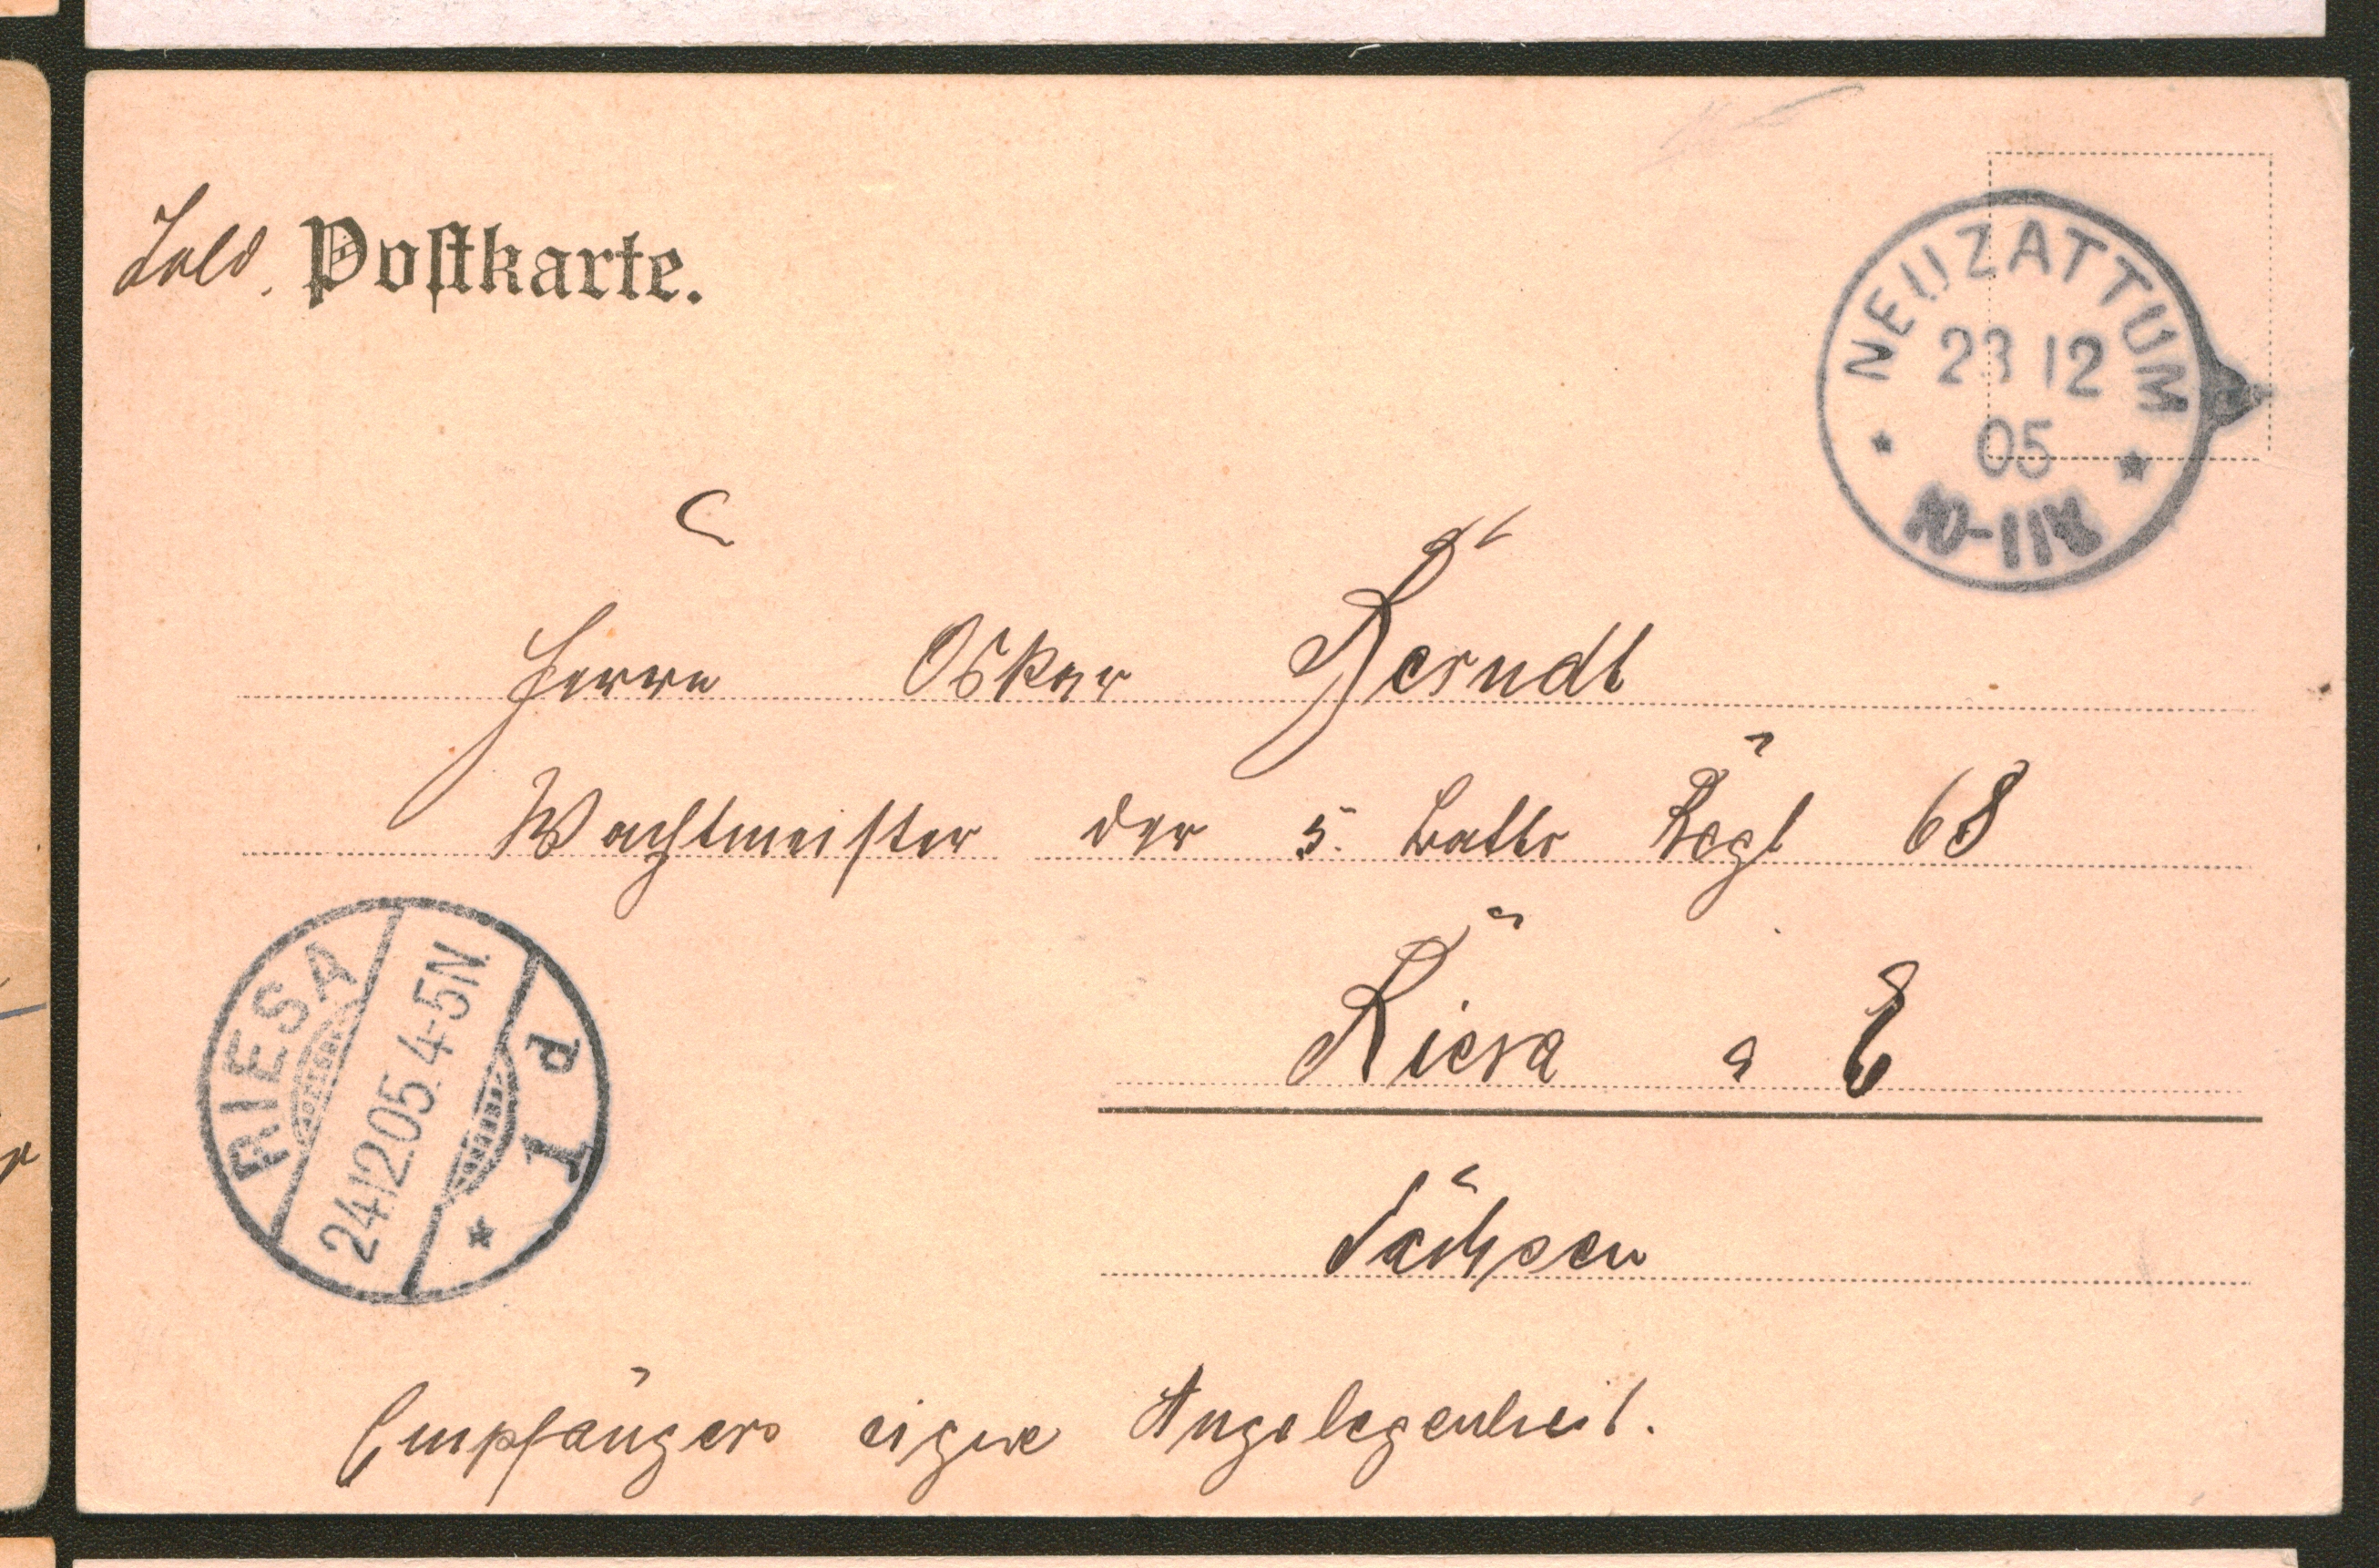 Sold. Postkarte.
NEUZATTUM
23 12
05
10-11V
Herrn Oskar Berndt
Wachtmeister der 5. Battr Regt 68
Riesa a E
Sachsen
RIESA
24.12.05. 4-5N.
1 d
Empfängers eigne Angelegenheit.